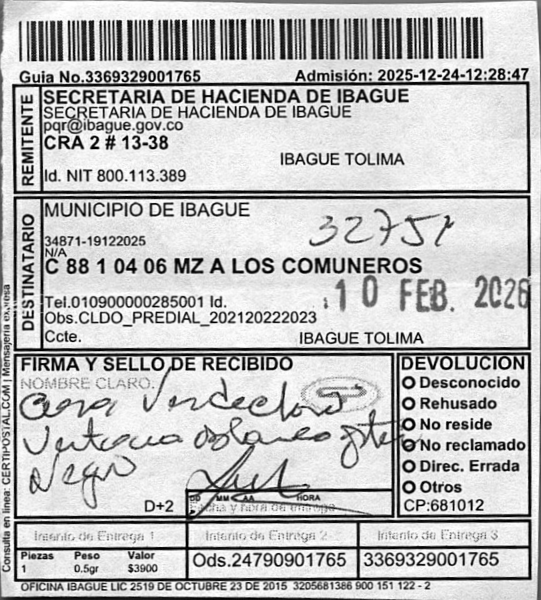 Guia No.3369329001765 Admisión: 2025-12-24-12:28:47
REMITENTE
SECRETARIA DE HACIENDA DE IBAGUE
SECRETARIA DE HACIENDA DE IBAGUE
pqr@ibague.gov.co
CRA 2 # 13-38
IBAGUE TOLIMA
Id. NIT 800.113.389
DESTINATARIO
MUNICIPIO DE IBAGUE
32751
34871-19122025
N/A
C 88 1 04 06 MZ A LOS COMUNEROS
10 FEB. 2026
Tel.010900000285001 Id.
Obs.CLDO_PREDIAL_202120222023
Ccte. IBAGUE TOLIMA
FIRMA Y SELLO DE RECIBIDO
NOMBRE CLARO:
Negro
D+2
DD MM AA HORA
Fecha y hora de entrega
DEVOLUCION
Desconocido
Rehusado
No reside
No reclamado
Direc. Errada
Otros
CP:681012
Intento de Entrega 1 Intento de Entrega 2 Intento de Entrega 3
Piezas Peso Valor
1 0.5gr $3900
Ods.24790901765 3369329001765
OFICINA IBAGUE LIC 2519 DE OCTUBRE 23 DE 2015 3205681386 900 151 122 - 2
Consulta en linea: CERTIPOSTAL.COM | Mensajeria expresa